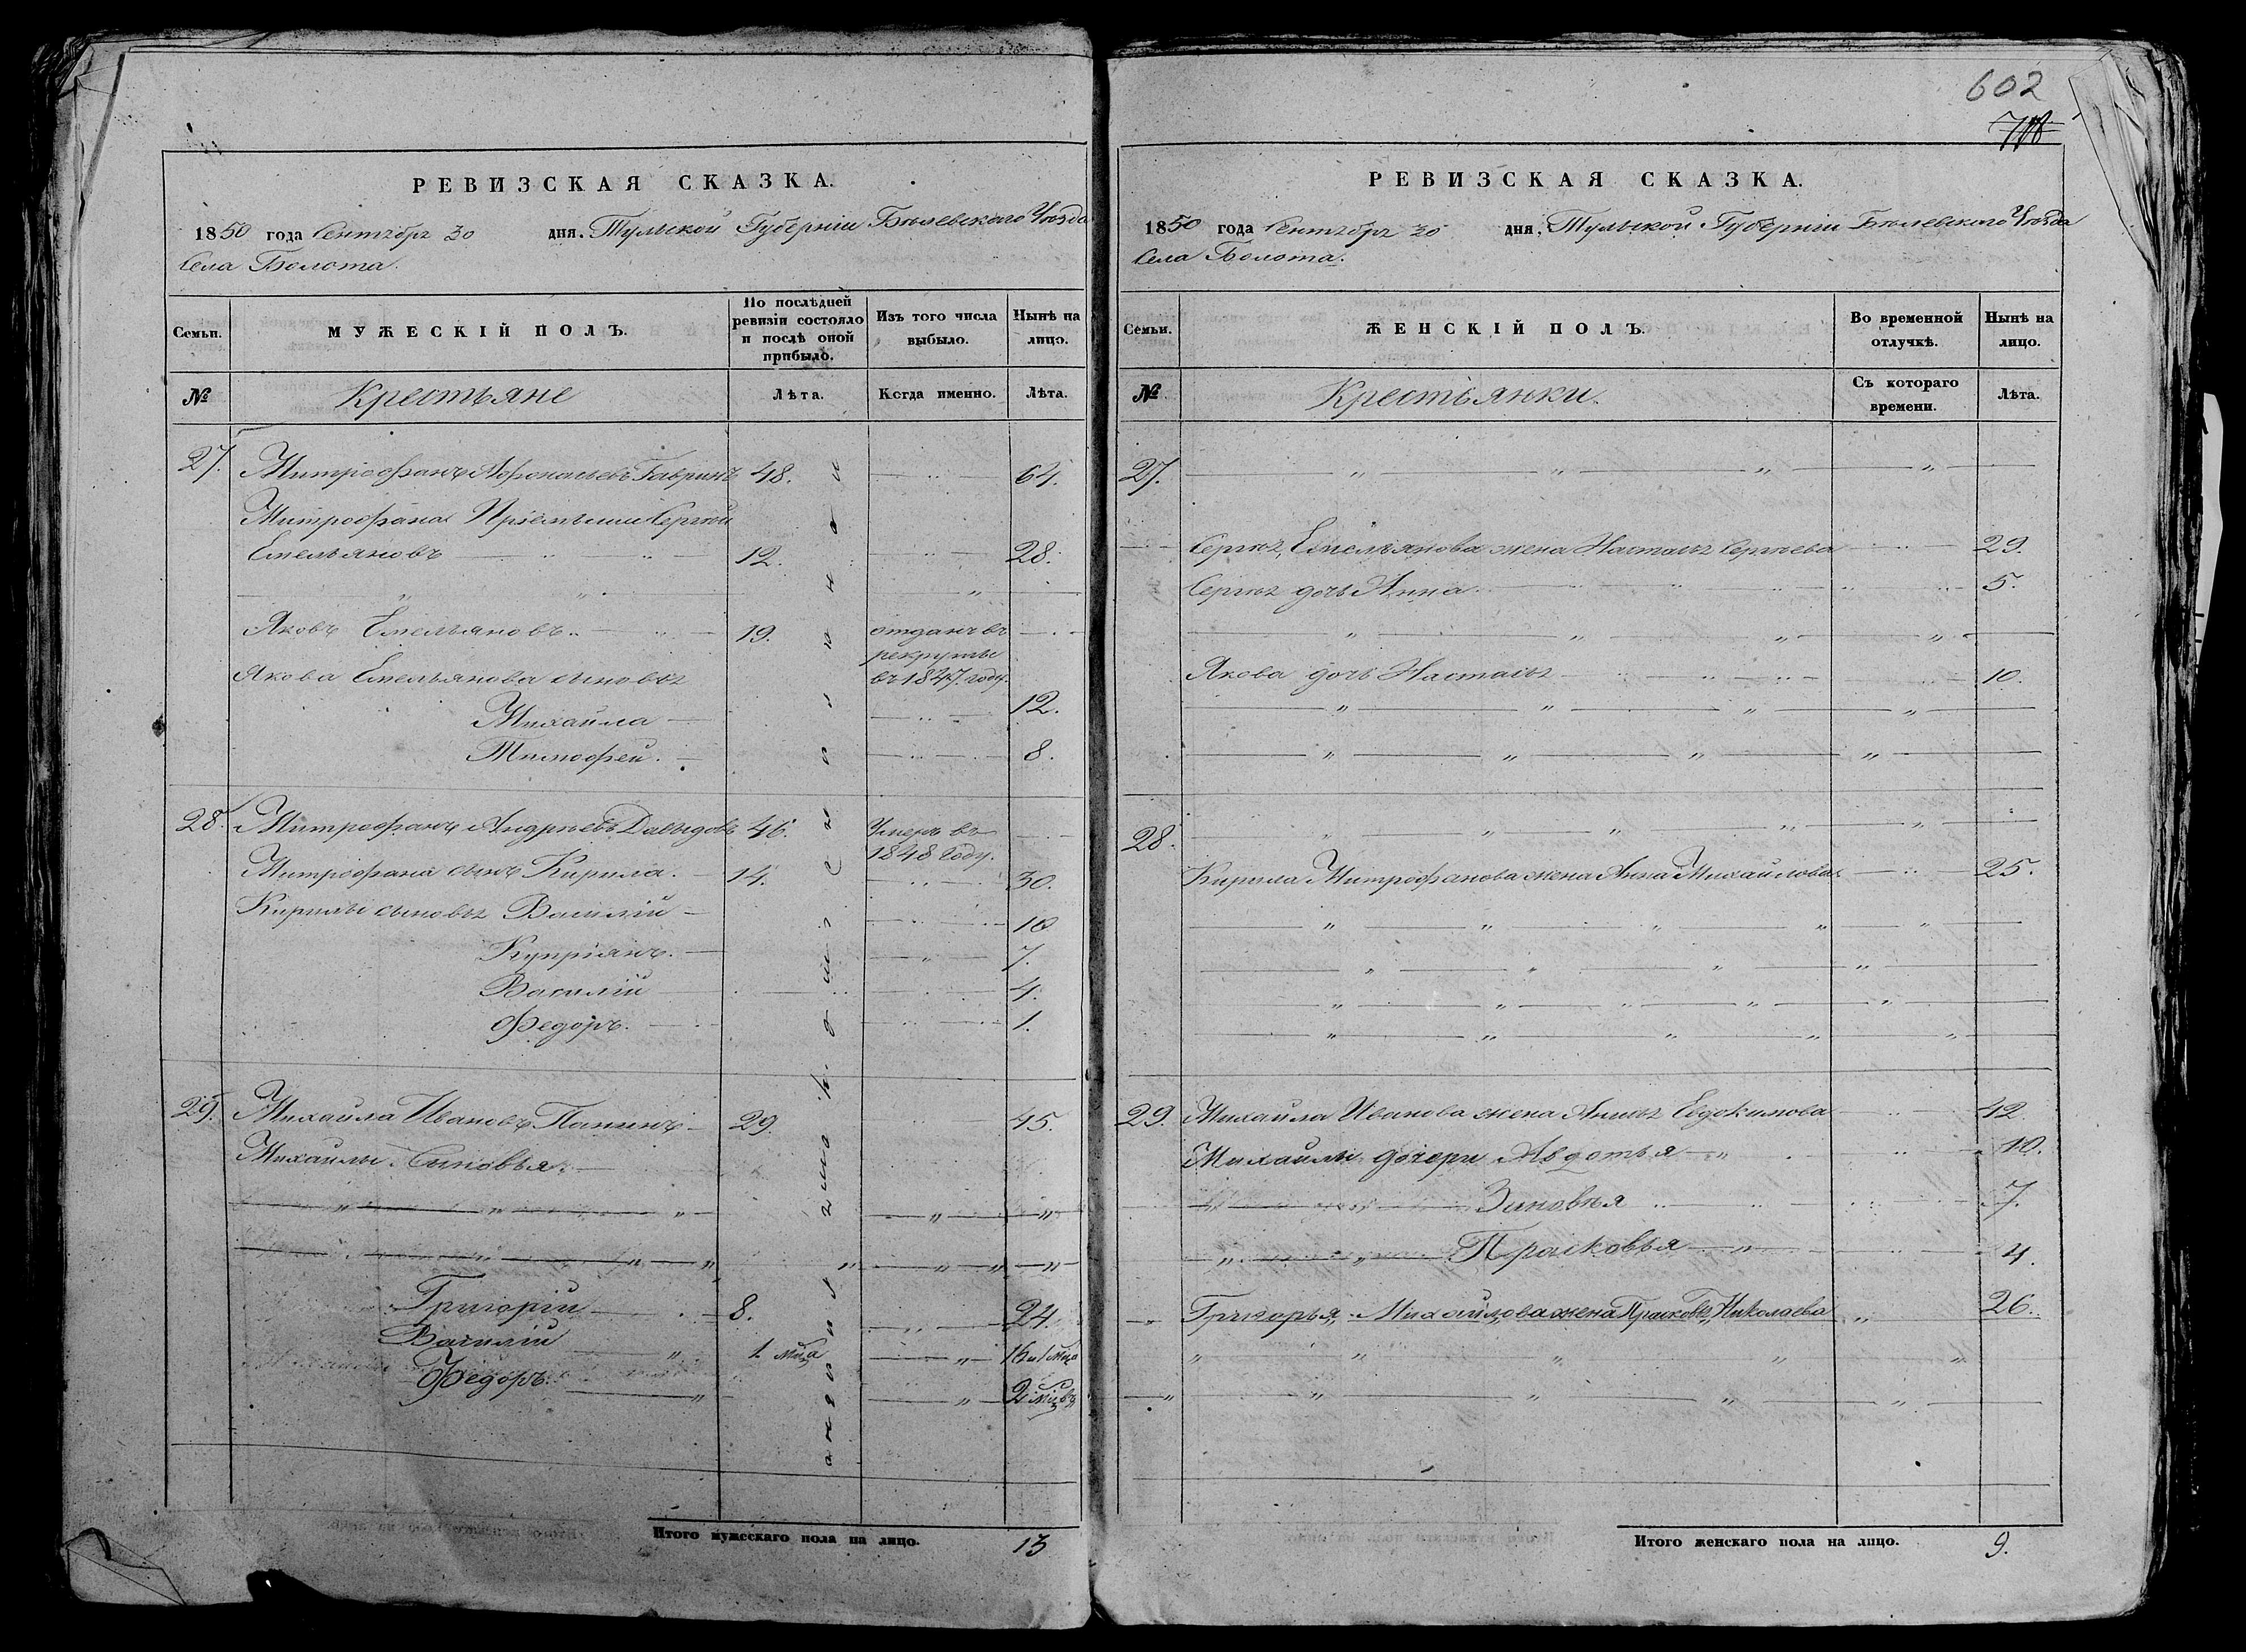 602
РЕВИЗСКАЯ СКАЗКА.
1850 года Сентября 30 дня. Тульской Губерніи Бѣлевскаго Уѣзда
Села Болота.
Семьи.
МУЖЕСКІЙ ПОЛЪ.
По послѣдней ревизіи состояло и послѣ оной прибыло.
Изъ того числа выбыло.
Нынѣ на лицо.
№
Крестьяне
Лѣта.
Когда именно.
Лѣта.
27. Митрофанъ Афонасьевъ Гавринъ 48. 64.
Митрофана Пріемыши Сергѣй
Емельяновъ 12. 28.
Яковъ Емельяновъ. 19. отданъ въ
рекруты
Якова Емельянова сыновья въ 1847. году.
Михайла 12.
Тимофей. 8.
28. Митрофанъ Андреевъ Давыдовъ 46. Умеръ въ
1848 году.
Митрофана сынъ Кирила. 14. 30.
Кирилы сыновья Василій 10
Купріянъ. 7.
Василій 4.
Федоръ. 1.
29. Михайла Ивановъ Панинъ 29. 45.
Михайлы Сыновья.
Григорій 8. 24.
Василій 1. мца 16 и 1 мца
Федоръ. 2 мцвъ
Итого мужескаго пола на лицо. 13
РЕВИЗСКАЯ СКАЗКА.
1850 года Сентября 30 дня, Тульской Губерніи Бѣлевскаго Уѣзда
Села Болота.
Семьи.
ЖЕНСКІЙ ПОЛЪ.
Во временной отлучкѣ.
Нынѣ на лицо.
№
Крестьянки.
Съ котораго времени.
Лѣта.
27.
Сергѣя Емельянова жена Настасья Сергѣева 29.
Сергѣя дочь Анна 5.
Якова дочь Настасья 10.
28.
Кирила Митрофанова жена Анна Михайлова 25.
29. Михайла Иванова жена Анисья Евдокимова 42
Михайлы дочери Авдотья 10.
Зиновья 7.
Прасковья 4.
Григорья Михайлова жена Прасковья Николаева 26.
Итого женскаго пола на лицо. 9.